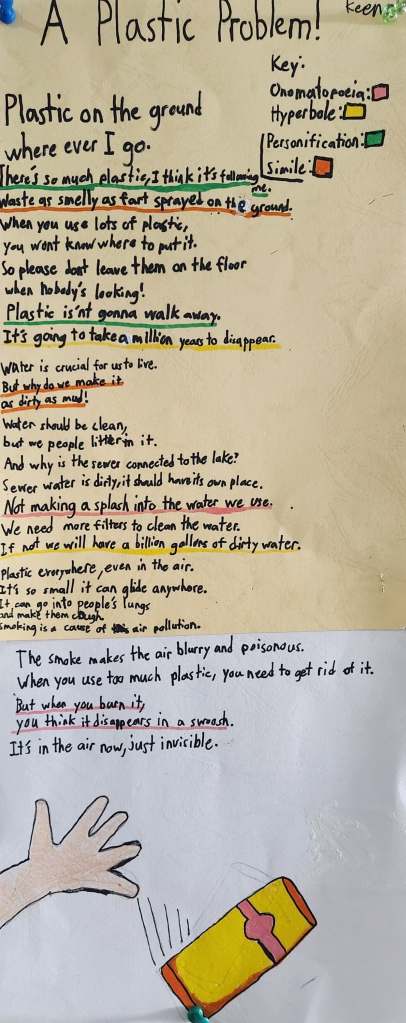 A Plastic Problem!
Keen
Key:
Onomatopoeia:
Hyperbole:
Personification:
Simile:
Plastic on the ground
where ever I go.
There's so much plastic, I think it's following
me.
Waste as smelly as fart sprayed on the ground.
When you use lots of plastic,
you wont know where to put it.
So please dont leave them on the floor
when nobody's looking!
Plastic is'nt gonna walk away.
It's going to take a million years to disappear.
Water is crucial for us to live.
But why do we make it
as dirty as mud!
Water should be clean,
but we people litter in it.
And why is the sewer connected to the lake?
Sewer water is dirty, it should have its own place.
Not making a splash into the water we use.
We need more filters to clean the water.
If not we will have a billion gallons of dirty water.
Plastic everywhere, even in the air.
It's so small it can glide anywhere.
It can go into people's lungs
and make them cough.
Smoking is a cause of air pollution.
The smoke makes the air blurry and poisonous.
When you use too much plastic, you need to get rid of it.
But when you burn it,
you think it disappears in a swoosh.
It's in the air now, just invisible.